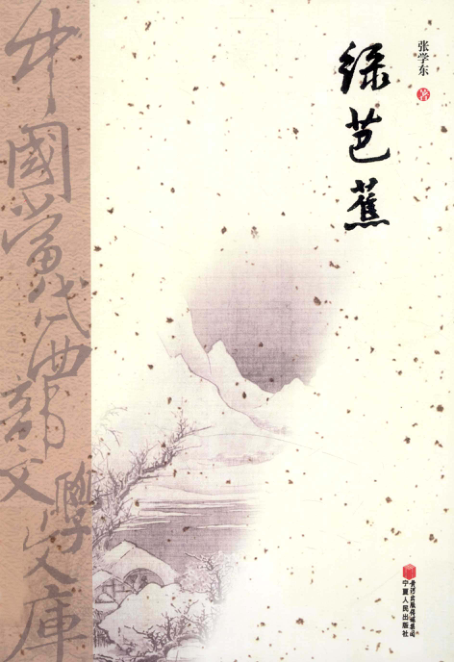 绿芭蕉
张学东 著
中國當代西部文學文庫
黄河出版传媒集团
宁夏人民出版社